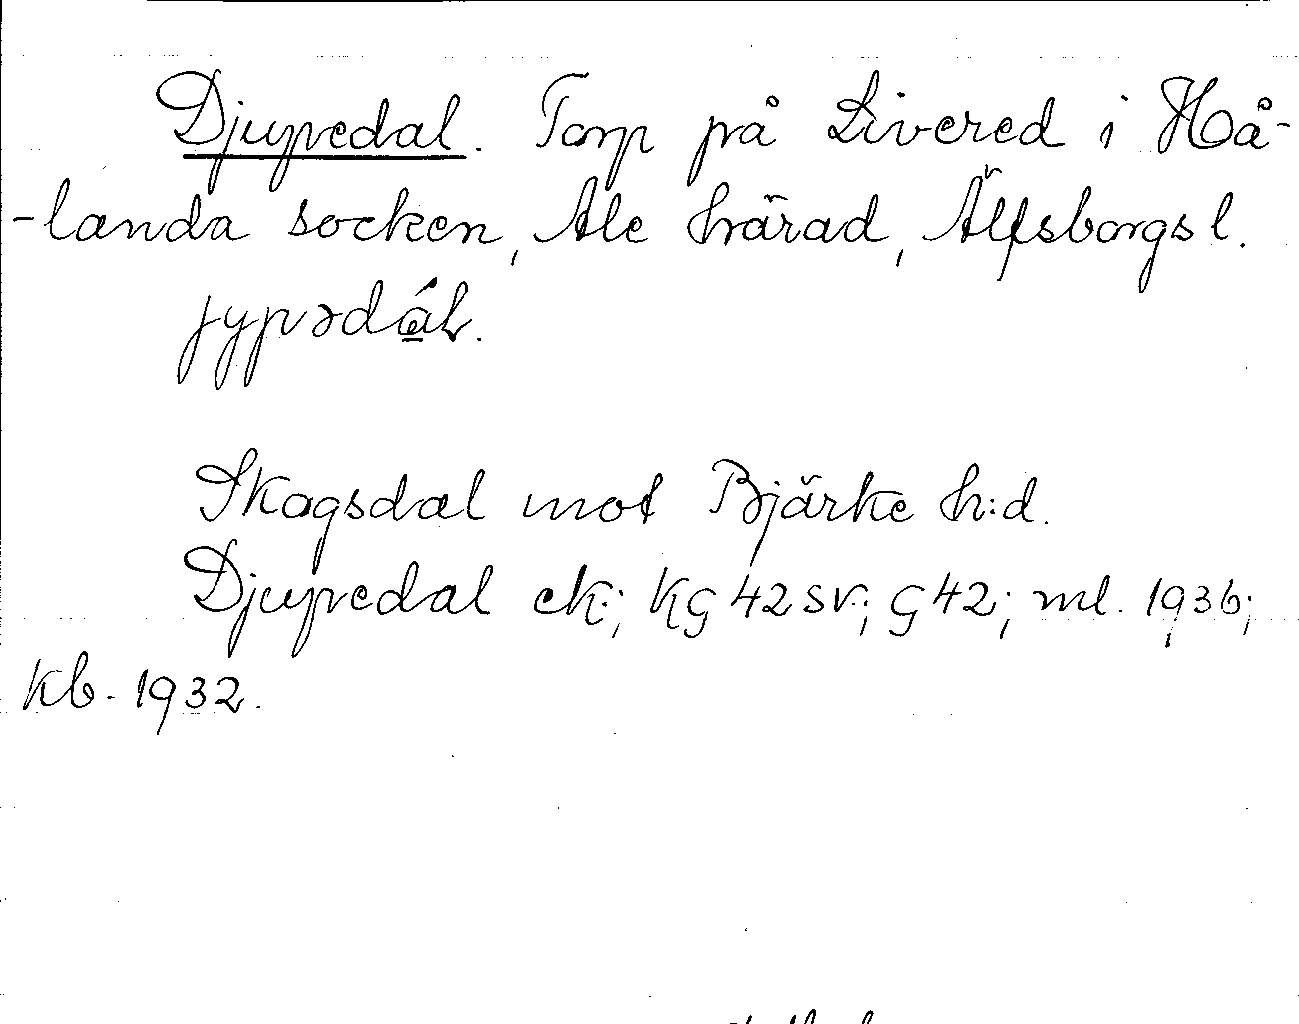 Djupedal. Torp på Livered i Hå-
-landa socken, Ale härad, Älfsborgs l.
jypədál.
Skogsdal mot Bjärke h:d.
Djupedal ek.; KG 42 SV.; G 42; ml. 1936;
kb. 1932.